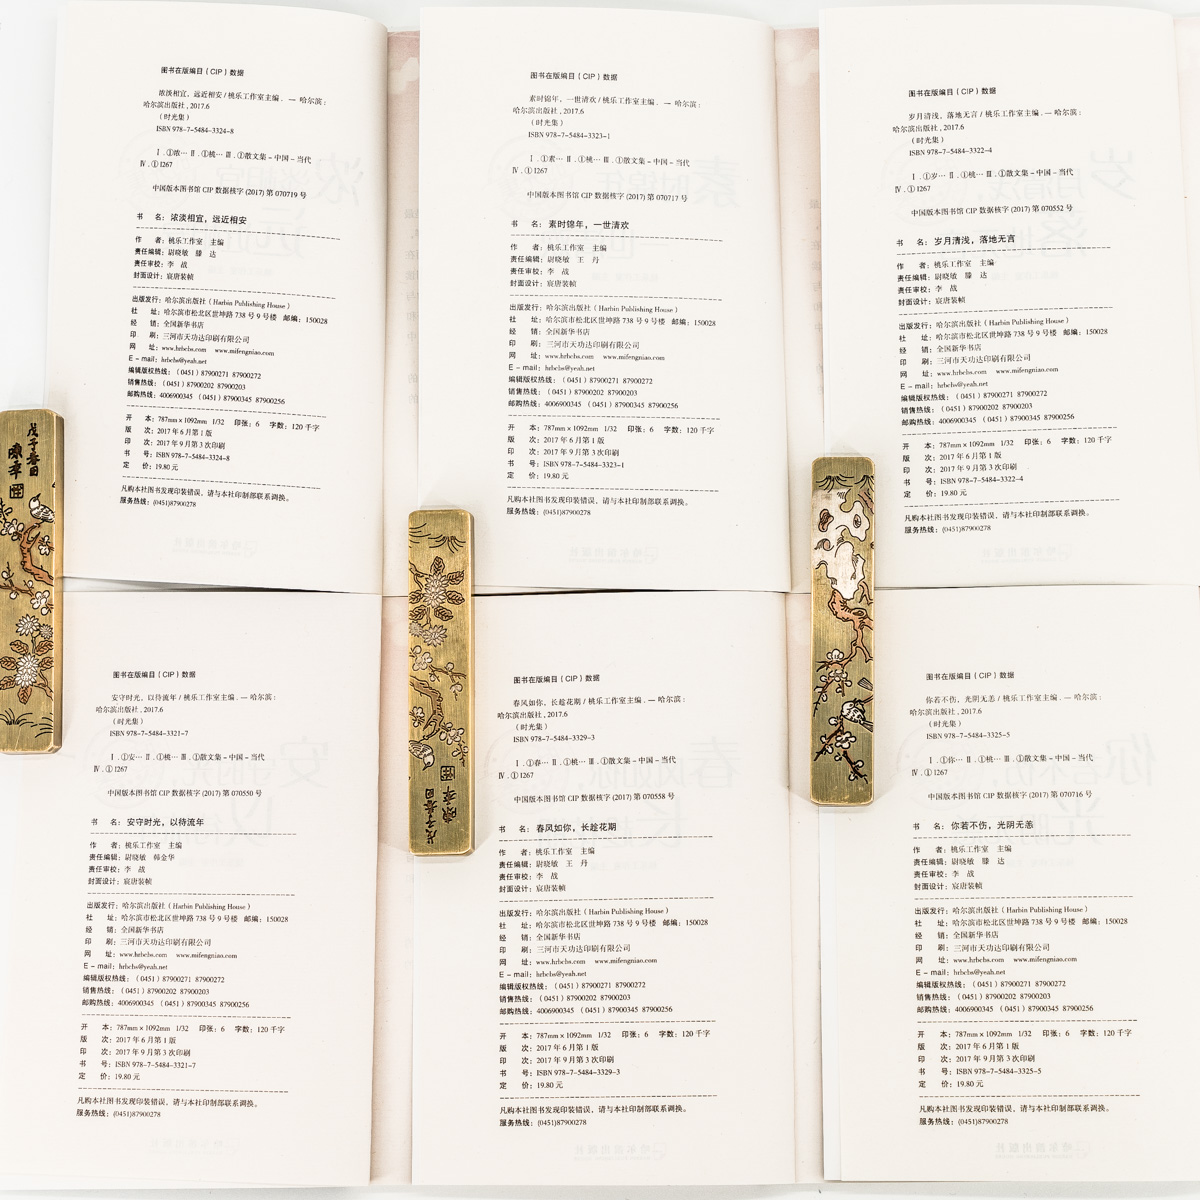 图书在版编目(CIP)数据
浓淡相宜，远近相安 / 桃乐工作室主编. — 哈尔滨：
哈尔滨出版社, 2017.6
(时光集)
ISBN 978-7-5484-3324-8
Ⅰ.①浓… Ⅱ.①桃… Ⅲ.①散文集-中国-当代
Ⅳ.①I267
中国版本图书馆 CIP 数据核字 (2017) 第 070719 号
书 名：浓淡相宜，远近相安
作 者：桃乐工作室 主编
责任编辑：尉晓敏 滕 达
责任审校：李 战
封面设计：宸唐装帧
出版发行：哈尔滨出版社 (Harbin Publishing House)
社 址：哈尔滨市松北区世坤路 738 号 9 号楼 邮编：150028
经 销：全国新华书店
印 刷：三河市天功达印刷有限公司
网 址：www.hrbcbs.com www.mifengniao.com
E-mail：hrbcbs@yeah.net
编辑版权热线：(0451) 87900271 87900272
销售热线：(0451) 87900202 87900203
邮购热线：4006900345 (0451) 87900345 87900256
开 本：787mm×1092mm 1/32 印张：6 字数：120 千字
版 次：2017 年 6 月第 1 版
印 次：2017 年 9 月第 3 次印刷
书 号：ISBN 978-7-5484-3324-8
定 价：19.80 元
凡购本社图书发现印装错误，请与本社印制部联系调换。
服务热线：(0451)87900278
图书在版编目(CIP)数据
素时锦年，一世清欢 / 桃乐工作室主编. — 哈尔滨：
哈尔滨出版社, 2017.6
(时光集)
ISBN 978-7-5484-3323-1
Ⅰ.①素… Ⅱ.①桃… Ⅲ.①散文集-中国-当代
Ⅳ.①I267
中国版本图书馆 CIP 数据核字 (2017) 第 070717 号
书 名：素时锦年，一世清欢
作 者：桃乐工作室 主编
责任编辑：尉晓敏 王 丹
责任审校：李 战
封面设计：宸唐装帧
出版发行：哈尔滨出版社 (Harbin Publishing House)
社 址：哈尔滨市松北区世坤路 738 号 9 号楼 邮编：150028
经 销：全国新华书店
印 刷：三河市天功达印刷有限公司
网 址：www.hrbcbs.com www.mifengniao.com
E-mail：hrbcbs@yeah.net
编辑版权热线：(0451) 87900271 87900272
销售热线：(0451) 87900202 87900203
邮购热线：4006900345 (0451) 87900345 87900256
开 本：787mm×1092mm 1/32 印张：6 字数：120 千字
版 次：2017 年 6 月第 1 版
印 次：2017 年 9 月第 3 次印刷
书 号：ISBN 978-7-5484-3323-1
定 价：19.80 元
凡购本社图书发现印装错误，请与本社印制部联系调换。
服务热线：(0451)87900278
图书在版编目(CIP)数据
岁月清浅，落地无言 / 桃乐工作室主编. — 哈尔滨：
哈尔滨出版社, 2017.6
(时光集)
ISBN 978-7-5484-3322-4
Ⅰ.①岁… Ⅱ.①桃… Ⅲ.①散文集-中国-当代
Ⅳ.①I267
中国版本图书馆 CIP 数据核字 (2017) 第 070552 号
书 名：岁月清浅，落地无言
作 者：桃乐工作室 主编
责任编辑：尉晓敏 滕 达
责任审校：李 战
封面设计：宸唐装帧
出版发行：哈尔滨出版社 (Harbin Publishing House)
社 址：哈尔滨市松北区世坤路 738 号 9 号楼 邮编：150028
经 销：全国新华书店
印 刷：三河市天功达印刷有限公司
网 址：www.hrbcbs.com www.mifengniao.com
E-mail：hrbcbs@yeah.net
编辑版权热线：(0451) 87900271 87900272
销售热线：(0451) 87900202 87900203
邮购热线：4006900345 (0451) 87900345 87900256
开 本：787mm×1092mm 1/32 印张：6 字数：120 千字
版 次：2017 年 6 月第 1 版
印 次：2017 年 9 月第 3 次印刷
书 号：ISBN 978-7-5484-3322-4
定 价：19.80 元
凡购本社图书发现印装错误，请与本社印制部联系调换。
服务热线：(0451)87900278
戊子春日
图书在版编目(CIP)数据
安守时光，以待流年 / 桃乐工作室主编. — 哈尔滨：
哈尔滨出版社, 2017.6
(时光集)
ISBN 978-7-5484-3321-7
Ⅰ.①安… Ⅱ.①桃… Ⅲ.①散文集-中国-当代
Ⅳ.①I267
中国版本图书馆 CIP 数据核字 (2017) 第 070550 号
书 名：安守时光，以待流年
作 者：桃乐工作室 主编
责任编辑：尉晓敏 韩金华
责任审校：李 战
封面设计：宸唐装帧
出版发行：哈尔滨出版社 (Harbin Publishing House)
社 址：哈尔滨市松北区世坤路 738 号 9 号楼 邮编：150028
经 销：全国新华书店
印 刷：三河市天功达印刷有限公司
网 址：www.hrbcbs.com www.mifengniao.com
E-mail：hrbcbs@yeah.net
编辑版权热线：(0451) 87900271 87900272
销售热线：(0451) 87900202 87900203
邮购热线：4006900345 (0451) 87900345 87900256
开 本：787mm×1092mm 1/32 印张：6 字数：120 千字
版 次：2017 年 6 月第 1 版
印 次：2017 年 9 月第 3 次印刷
书 号：ISBN 978-7-5484-3321-7
定 价：19.80 元
凡购本社图书发现印装错误，请与本社印制部联系调换。
服务热线：(0451)87900278
图书在版编目(CIP)数据
春风如你，长趁花期 / 桃乐工作室主编. — 哈尔滨：
哈尔滨出版社, 2017.6
(时光集)
ISBN 978-7-5484-3329-3
Ⅰ.①春… Ⅱ.①桃… Ⅲ.①散文集-中国-当代
Ⅳ.①I267
中国版本图书馆 CIP 数据核字 (2017) 第 070558 号
书 名：春风如你，长趁花期
作 者：桃乐工作室 主编
责任编辑：尉晓敏 王 丹
责任审校：李 战
封面设计：宸唐装帧
出版发行：哈尔滨出版社 (Harbin Publishing House)
社 址：哈尔滨市松北区世坤路 738 号 9 号楼 邮编：150028
经 销：全国新华书店
印 刷：三河市天功达印刷有限公司
网 址：www.hrbcbs.com www.mifengniao.com
E-mail：hrbcbs@yeah.net
编辑版权热线：(0451) 87900271 87900272
销售热线：(0451) 87900202 87900203
邮购热线：4006900345 (0451) 87900345 87900256
开 本：787mm×1092mm 1/32 印张：6 字数：120 千字
版 次：2017 年 6 月第 1 版
印 次：2017 年 9 月第 3 次印刷
书 号：ISBN 978-7-5484-3329-3
定 价：19.80 元
凡购本社图书发现印装错误，请与本社印制部联系调换。
服务热线：(0451)87900278
戊子春日
图书在版编目(CIP)数据
你若不伤，光阴无恙 / 桃乐工作室主编. — 哈尔滨：
哈尔滨出版社, 2017.6
(时光集)
ISBN 978-7-5484-3325-5
Ⅰ.①你… Ⅱ.①桃… Ⅲ.①散文集-中国-当代
Ⅳ.①I267
中国版本图书馆 CIP 数据核字 (2017) 第 070716 号
书 名：你若不伤，光阴无恙
作 者：桃乐工作室 主编
责任编辑：尉晓敏 滕 达
责任审校：李 战
封面设计：宸唐装帧
出版发行：哈尔滨出版社 (Harbin Publishing House)
社 址：哈尔滨市松北区世坤路 738 号 9 号楼 邮编：150028
经 销：全国新华书店
印 刷：三河市天功达印刷有限公司
网 址：www.hrbcbs.com www.mifengniao.com
E-mail：hrbcbs@yeah.net
编辑版权热线：(0451) 87900271 87900272
销售热线：(0451) 87900202 87900203
邮购热线：4006900345 (0451) 87900345 87900256
开 本：787mm×1092mm 1/32 印张：6 字数：120 千字
版 次：2017 年 6 月第 1 版
印 次：2017 年 9 月第 3 次印刷
书 号：ISBN 978-7-5484-3325-5
定 价：19.80 元
凡购本社图书发现印装错误，请与本社印制部联系调换。
服务热线：(0451)87900278